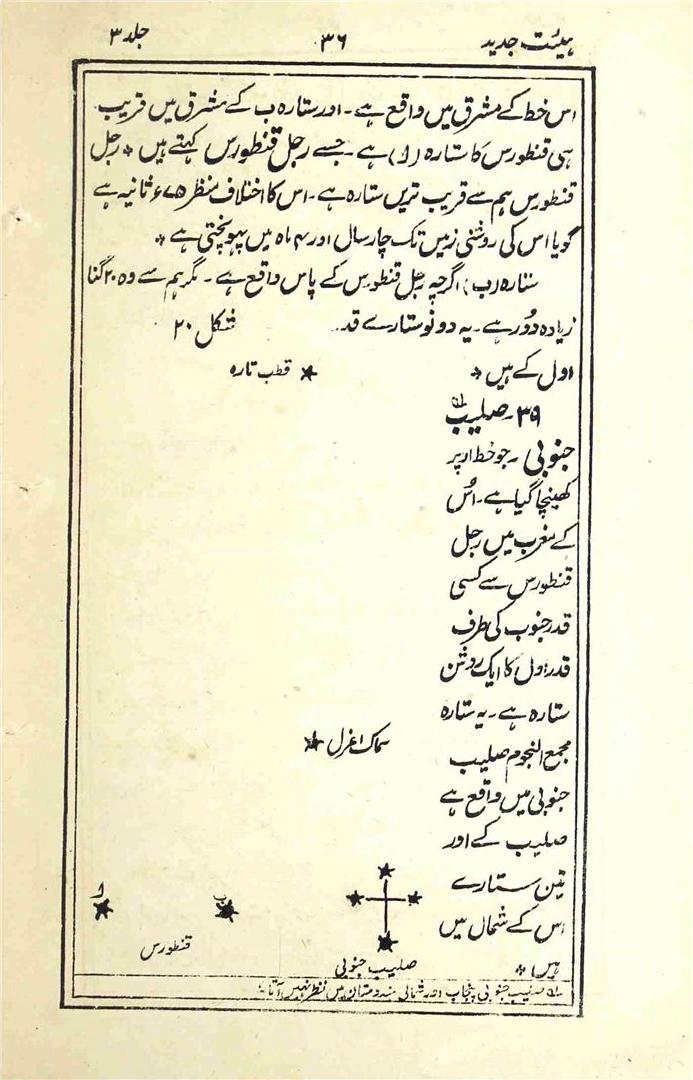 ہیئت جدید ۳۶ جلد ۳
اس خط کے مشرق میں واقع ہے۔ اور ستارہ ب کے مشرق میں قریب
ہی قنطورس کا ستارہ (ا) ہے۔ جسے رجل قنطورس کہتے ہیں ٭ رجل
قنطورس ہم سے قریب تریں ستارہ ہے۔ اس کا اختلاف منظر ۷۵ء ثانیہ ہے
گویا اس کی روشنی زمین تک چار سال اور ۴ ماہ میں پہونچتی ہے ٭
ستارہ (ب) اگرچہ رجل قنطورس کے پاس واقع ہے۔ مگر ہم سے وہ ۲۰ گنا
زیادہ دُور ہے۔ یہ دونو ستارے قدر
شکل ۲۰
اول کے ہیں ٭
قطب تارہ
۳۹۔ صلیب
جنوبی۔ جو خط اوپر
کھینچا گیا ہے۔ اُس
کے مغرب میں رجل
قنطورس سے کسی
قدر جنوب کی طرف
قدر اول کا ایک روشن
ستارہ ہے۔ یہ ستارہ
سماک اغزل
مجمع النجوم صلیب
جنوبی میں واقع ہے
صلیب کے اور
تین ستارے
ا
ب
اس کے شمال میں
قنطورس
ہیں ٭
صلیب جنوبی
صلیب جنوبی پنجاب اور شمالی ہندوستان میں نظر نہیں آتا ٭